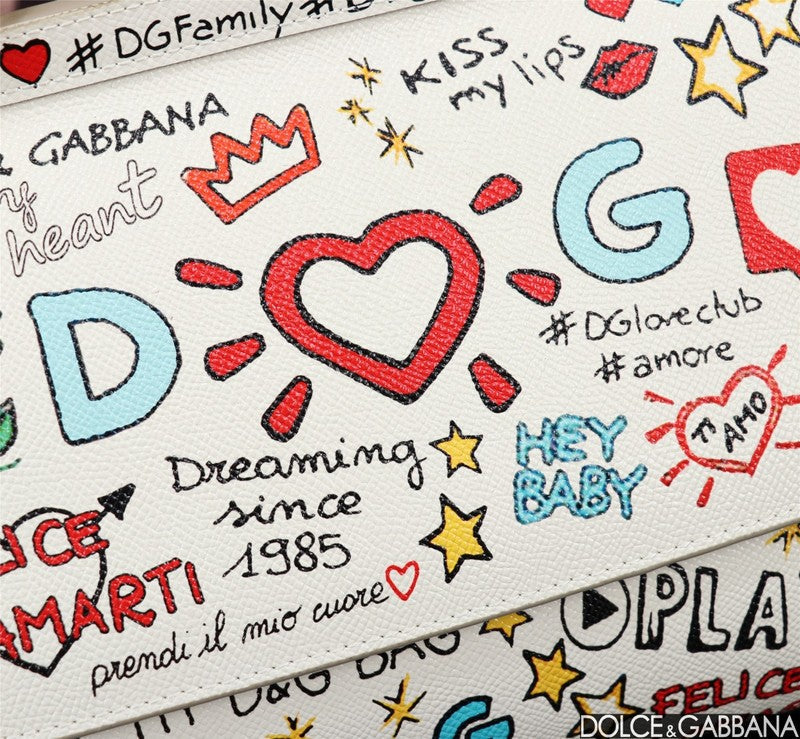 #DGFamily #D
KISS
my lips
& GABBANA
my
heart
D G
#DGloveclub
#amore
TI
AMO
HEY
BABY
Dreaming
since
1985
LICE
AMARTI
prendi il mio cuore
PLA
MY D&G BAG
FELICE
DOLCE & GABBANA